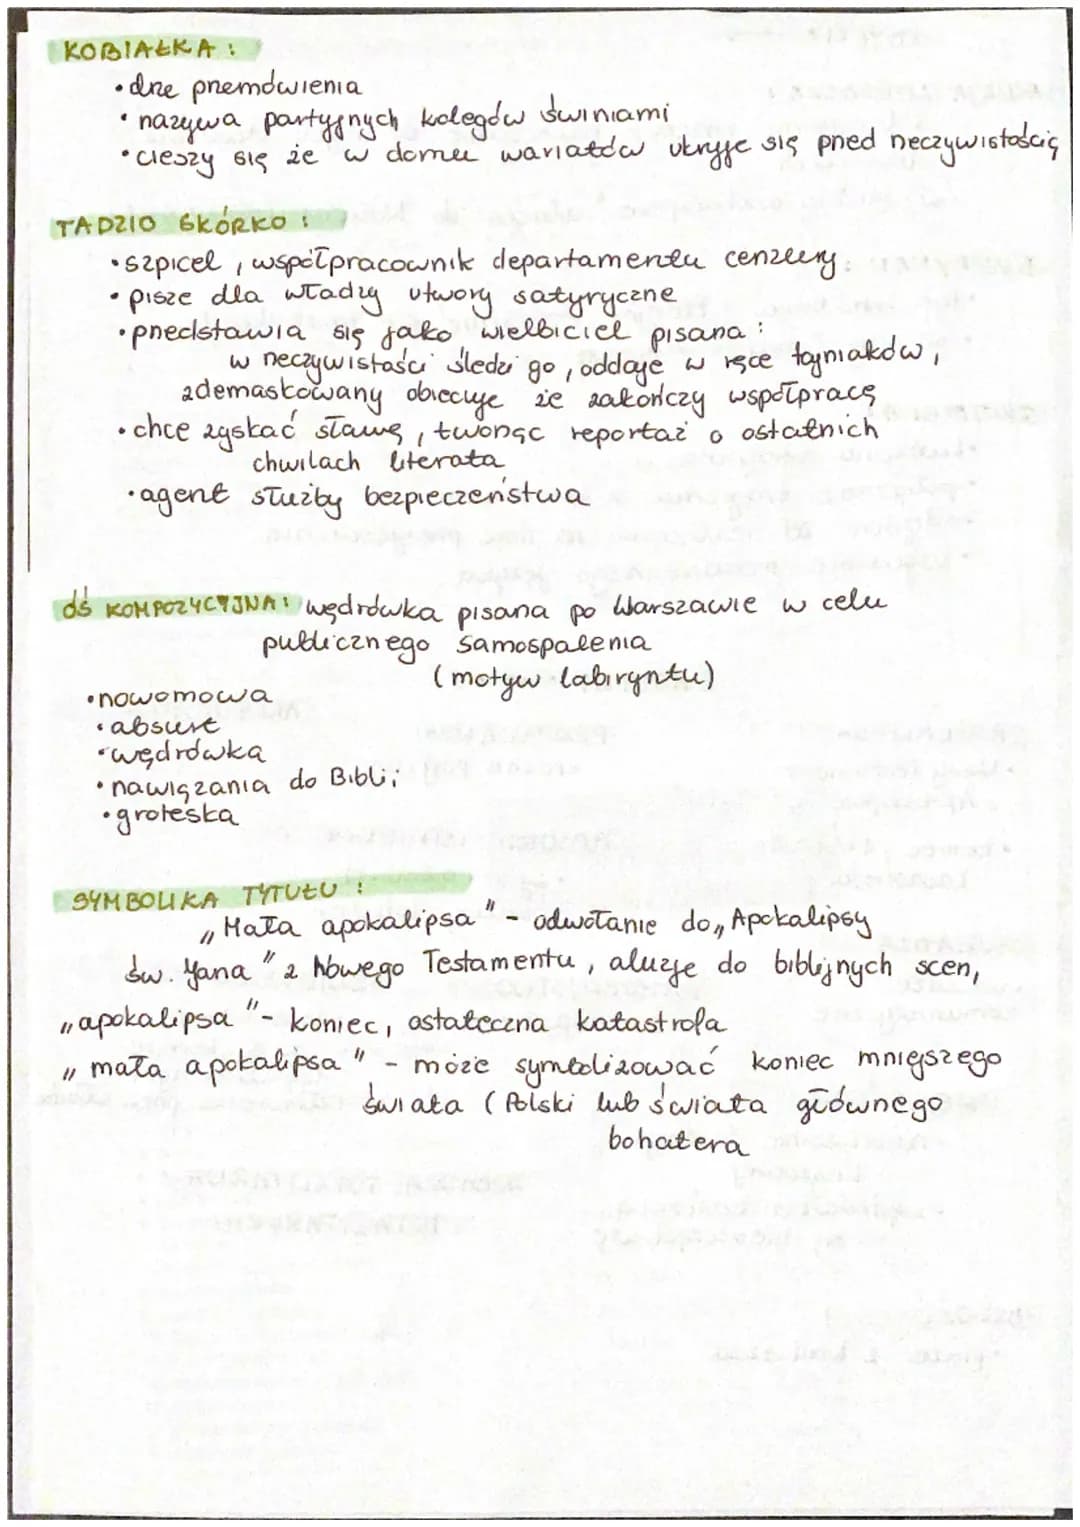 KOBIAŁKA :
• drze przemówienia
• nazywa partyjnych kolegów świniami
• cieszy się że w domu wariatów ukryje się przed rzeczywistością
TADZIO SKÓRKO :
• szpicel, współpracownik departamentu cenzury
• pisze dla władzy utwory satyryczne
• przedstawia się jako wielbiciel pisarza :
w rzeczywistości śledzi go, oddaje w ręce tajniaków,
zdemaskowany obiecuje że zakończy współpracę
• chce zyskać sławę, tworząc reportaż o ostatnich
chwilach literata
• agent służby bezpieczeństwa
OŚ KOMPOZYCYJNA: wędrówka pisarza po Warszawie w celu
publicznego samospalenia
(motyw labiryntu)
• nowomowa
• absurt
• wędrówka
• nawiązania do Biblii
• groteska
SYMBOLIKA TYTUŁU :
„Mała apokalipsa" - odwołanie do „Apokalipsy
św. Jana" z Nowego Testamentu, aluzje do biblijnych scen,
„apokalipsa" - koniec, ostateczna katastrofa
„mała apokalipsa" - może symbolizować koniec mniejszego
świata (Polski lub świata głównego
bohatera